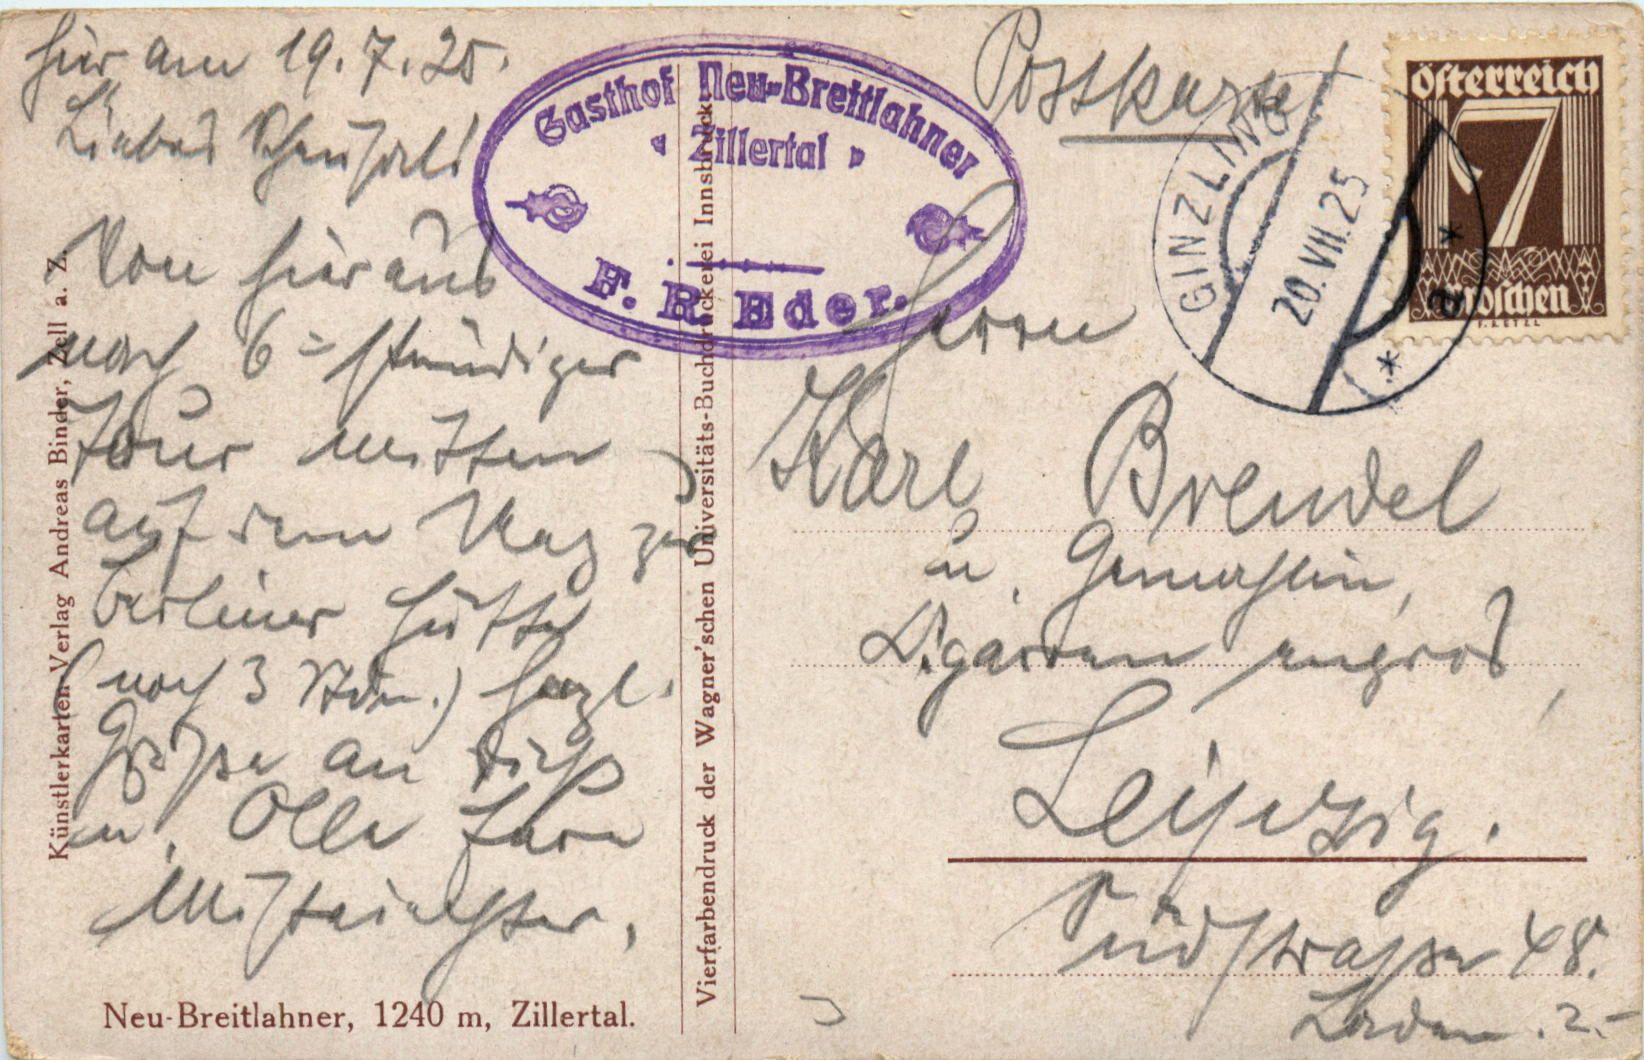 hier am 19.7.25.
Liebes
Von hier aus
nach 6=stündiger
Tour mitten
auf dem Weg zur
Berliner Hütte
(noch 3 Stdn.) herzl.
Grüße an Dich
u. Olle
Gasthof Neu-Breitlahner
Zillertal
F. R. Eder.
Postkarte
GINZLING
20.VII.25
a
Österreich
7
Groschen
Herrn
Karl Brendel
u.
Zigarren engros,
Leipzig.
Südstrasse 48.
Laden
Künstlerkarten-Verlag Andreas Binder, Zell a. Z.
Vierfarbendruck der Wagner'schen Universitäts-Buchdruckerei Innsbruck.
Neu-Breitlahner, 1240 m, Zillertal.